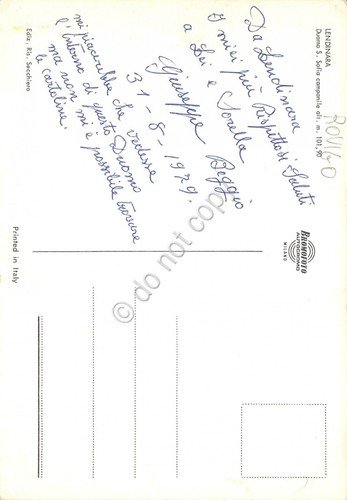 LENDINARA
Duomo S. Sofia campanile alt. m. 101,90
ROVIGO
Da Lendinara
I miei più Rispettosi Saluti
a Lei e Sorella
Giuseppe Boggio
31-8-1979.
mi piacerebbe che vedesse
l'interno di questo Duomo
ma non mi è possibile trovare
le cartoline.
Ediz. Ris. Secchiero
BROMOFOTO
AUTOCROMO
MILANO
Printed in Italy
© do not copy